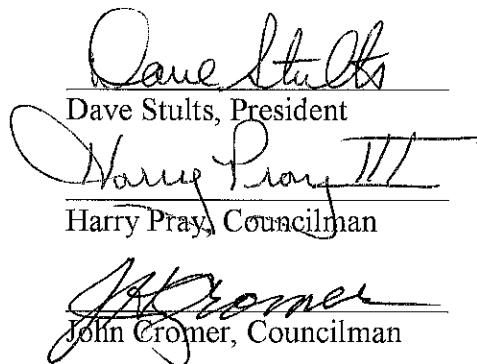 Dave Stults
Dave Stults, President
Harry Pray III
Harry Pray, Councilman
JH Cromer
John Cromer, Councilman